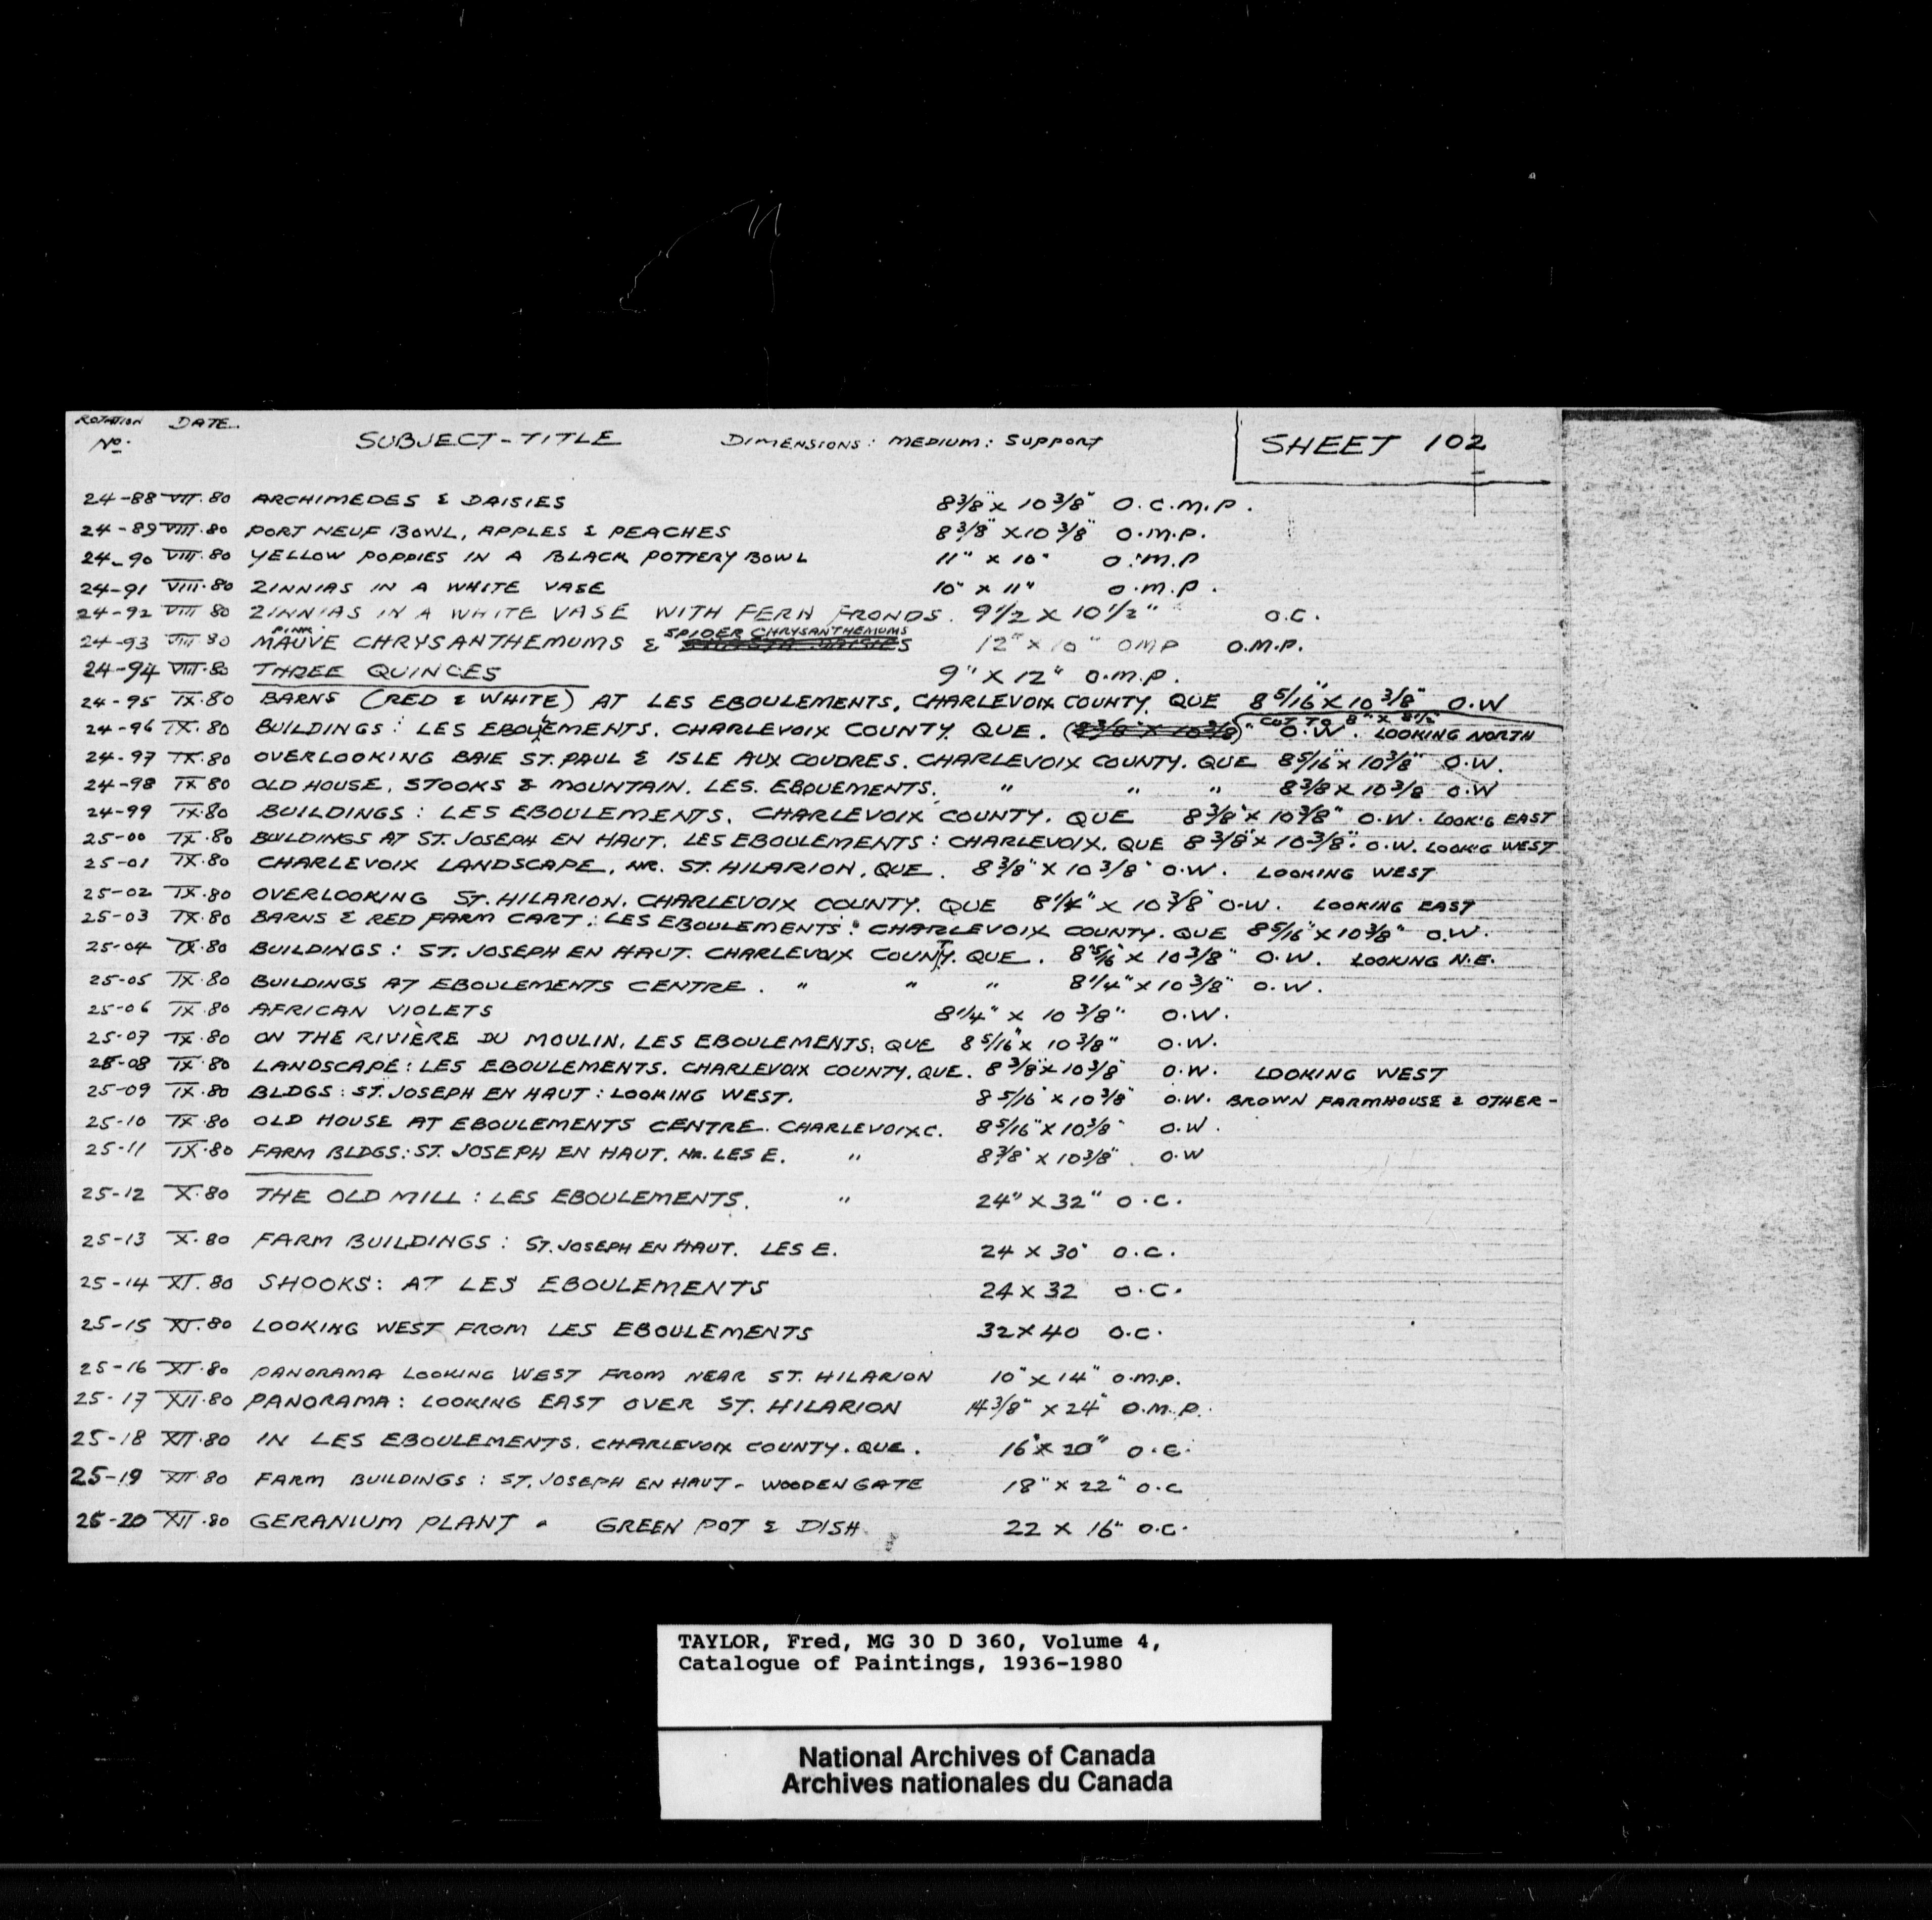 ROTATION No. DATE. SUBJECT-TITLE DIMENSIONS: MEDIUM: SUPPORT SHEET 102
24-88 VII.80 ARCHIMEDES & DAISIES 8 3/8" x 10 3/8" O.C.M.P.
24-89 VIII.80 PORT NEUF BOWL, APPLES & PEACHES 8 3/8" x 10 3/8" O.M.P.
24-90 VIII.80 YELLOW POPPIES IN A BLACK POTTERY BOWL 11" x 10" O.M.P
24-91 VIII.80 ZINNIAS IN A WHITE VASE 10" x 11" O.M.P.
24-92 VIII 80 ZINNIAS IN A WHITE VASE WITH FERN FRONDS. 9 1/2 x 10 1/2" O.C.
24-93 VIII 80 PINK MAUVE CHRYSANTHEMUMS & SPIDER CHRYSANTHEMUMS 12" x 10" OMP O.M.P.
24-94 VIII.80 THREE QUINCES 9" x 12" O.M.P.
24-95 IX.80 BARNS (RED & WHITE) AT LES EBOULEMENTS, CHARLEVOIX COUNTY. QUE 8 5/16" x 10 3/8" O.W
24-96 IX.80 BUILDINGS: LES EBOULEMENTS. CHARLEVOIX COUNTY. QUE. (8 3/8" x 10 3/8)" CUT TO 8" x 8 1/2" O.W. LOOKING NORTH
24-97 IX.80 OVERLOOKING BAIE ST. PAUL & ISLE AUX COUDRES. CHARLEVOIX COUNTY. QUE 8 5/16" x 10 3/8" O.W.
24-98 IX 80 OLD HOUSE, STOOKS & MOUNTAIN. LES. EBOUEMENTS. " " " 8 3/8 x 10 3/8 O.W
24-99 IX.80 BUILDINGS: LES EBOULEMENTS, CHARLEVOIX COUNTY. QUE 8 3/8" x 10 3/8" O.W. LOOK'G EAST
25-00 IX.80 BUILDINGS AT ST. JOSEPH EN HAUT. LES EBOULEMENTS: CHARLEVOIX. QUE 8 3/8" x 10 3/8". O.W. LOOK'G WEST
25-01 IX.80 CHARLEVOIX LANDSCAPE, NR. ST. HILARION, QUE. 8 3/8" x 10 3/8" O.W. LOOKING WEST
25-02 IX.80 OVERLOOKING ST. HILARION. CHARLEVOIX COUNTY. QUE 8 1/4" x 10 3/8" O.W. LOOKING EAST
25-03 IX.80 BARNS & RED FARM CART: LES EBOULEMENTS: CHARLEVOIX COUNTY. QUE 8 5/16" x 10 3/8" O.W.
25-04 IX.80 BUILDINGS: ST. JOSEPH EN HAUT. CHARLEVOIX COUNTY. QUE. 8 5/16" x 10 3/8" O.W. LOOKING N.E.
25-05 IX.80 BUILDINGS AT EBOULEMENTS CENTRE. " " " 8 1/4" x 10 3/8" O.W.
25-06 IX.80 AFRICAN VIOLETS 8 1/4" x 10 3/8" O.W.
25-07 IX.80 ON THE RIVIÈRE DU MOULIN, LES EBOULEMENTS, QUE 8 5/16" x 10 3/8" O.W.
25-08 IX.80 LANDSCAPE: LES EBOULEMENTS. CHARLEVOIX COUNTY. QUE. 8 3/8" x 10 3/8" O.W. LOOKING WEST
25-09 IX.80 BLDGS: ST. JOSEPH EN HAUT: LOOKING WEST. 8 5/16" x 10 3/8" O.W. BROWN FARMHOUSE & OTHER-
25-10 IX.80 OLD HOUSE AT EBOULEMENTS CENTRE. CHARLEVOIX C. 8 5/16" x 10 3/8" O.W.
25-11 IX.80 FARM BLDGS: ST. JOSEPH EN HAUT. NR. LES E. " 8 3/8" x 10 3/8" O.W
25-12 X.80 THE OLD MILL: LES EBOULEMENTS. " 24" x 32" O.C.
25-13 X.80 FARM BUILDINGS: ST. JOSEPH EN HAUT. LES E. 24 x 30" O.C.
25-14 XI.80 SHOOKS: AT LES EBOULEMENTS 24 x 32 O.C.
25-15 XI.80 LOOKING WEST FROM LES EBOULEMENTS 32 x 40 O.C.
25-16 XI.80 PANORAMA LOOKING WEST FROM NEAR ST. HILARION 10" x 14" O.M.P.
25-17 XII.80 PANORAMA: LOOKING EAST OVER ST. HILARION 14 3/8" x 24" O.M.P.
25-18 XII.80 IN LES EBOULEMENTS. CHARLEVOIX COUNTY. QUE. 16" x 20" O.C.
25-19 XII 80 FARM BUILDINGS: ST. JOSEPH EN HAUT - WOODEN GATE 18" x 22" O.C
25-20 XII.80 GERANIUM PLANT - GREEN POT & DISH 22 x 16" O.C.
TAYLOR, Fred, MG 30 D 360, Volume 4,
Catalogue of Paintings, 1936-1980
National Archives of Canada
Archives nationales du Canada